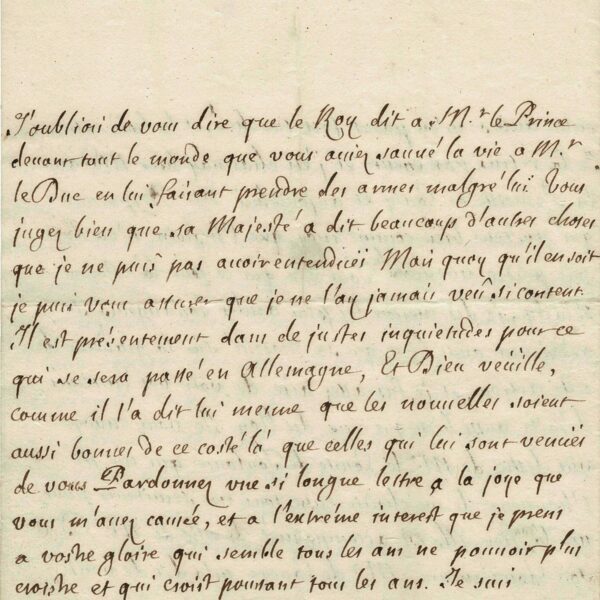 J'oubliai de vous dire que le Roy dit a M.r le Prince
deuant tout le monde que vous auiez sauué la vie a M.r
le Duc en lui faisant prendre des armes malgré lui Vous
jugez bien que sa Majesté a dit beaucoup d'autres choses
que je ne puis pas auoir entenduës Mais quoy qu'il en soit
je puis vous assurer que je ne l'ay jamais veû si content.
Il est présentement dans de justes inquietudes pour ce
qui se sera passé en Allemagne, Et Dieu veüille,
comme il l'a dit lui mesme que les nouuelles soient
aussi bonnes de ce costé là que celles qui lui sont venuës
de vous Pardonnez vne si longue lettre a la joye que
vous m'auez causée, et a l'extréme interest que je prens
a vostre gloire qui semble tous les ans ne pouuoir plus
croistre et qui croist pourtant tous les ans. Je suis